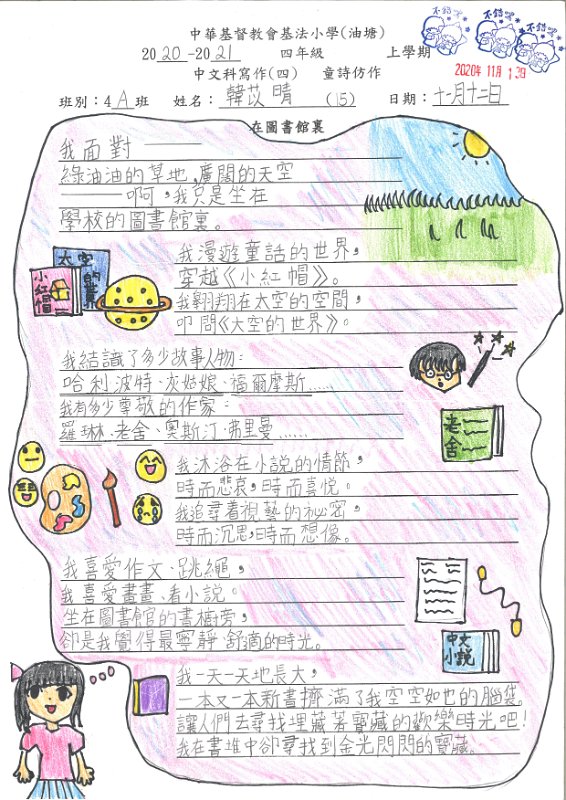 中華基督教會基法小學(油塘)
2020-2021 四年級 上學期
中文科寫作(四) 童詩仿作
不錯呀
不錯呀
不錯呀
2020年11月
班別:4A班 姓名:韓苡晴 (15) 日期:十一月十二日
在圖書館裏
我面對——
綠油油的草地,廣闊的天空
——啊,我只是坐在
學校的圖書館裏。
我漫遊童話的世界,
穿越《小紅帽》。
我翱翔在太空的空間,
叩問《太空的世界》。
太空的世界
小紅帽
我結識了多少故事人物:
哈利波特、灰姑娘、福爾摩斯……
我有多少尊敬的作家:
羅琳、老舍、奧斯汀、弗里曼……
老舍
我沐浴在小說的情節,
時而悲哀,時而喜悅。
我追尋着視藝的秘密,
時而沉思,時而想像。
我喜愛作文、跳繩,
我喜愛畫畫、看小說。
坐在圖書館的書櫥旁,
卻是我覺得最寧靜、舒適的時光。
中文小說
我一天一天地長大,
一本又一本新書擠滿了我空空如也的腦袋。
讓人們去尋找埋藏著寶藏的歡樂時光吧!
我在書堆中卻尋找到金光閃閃的寶藏。